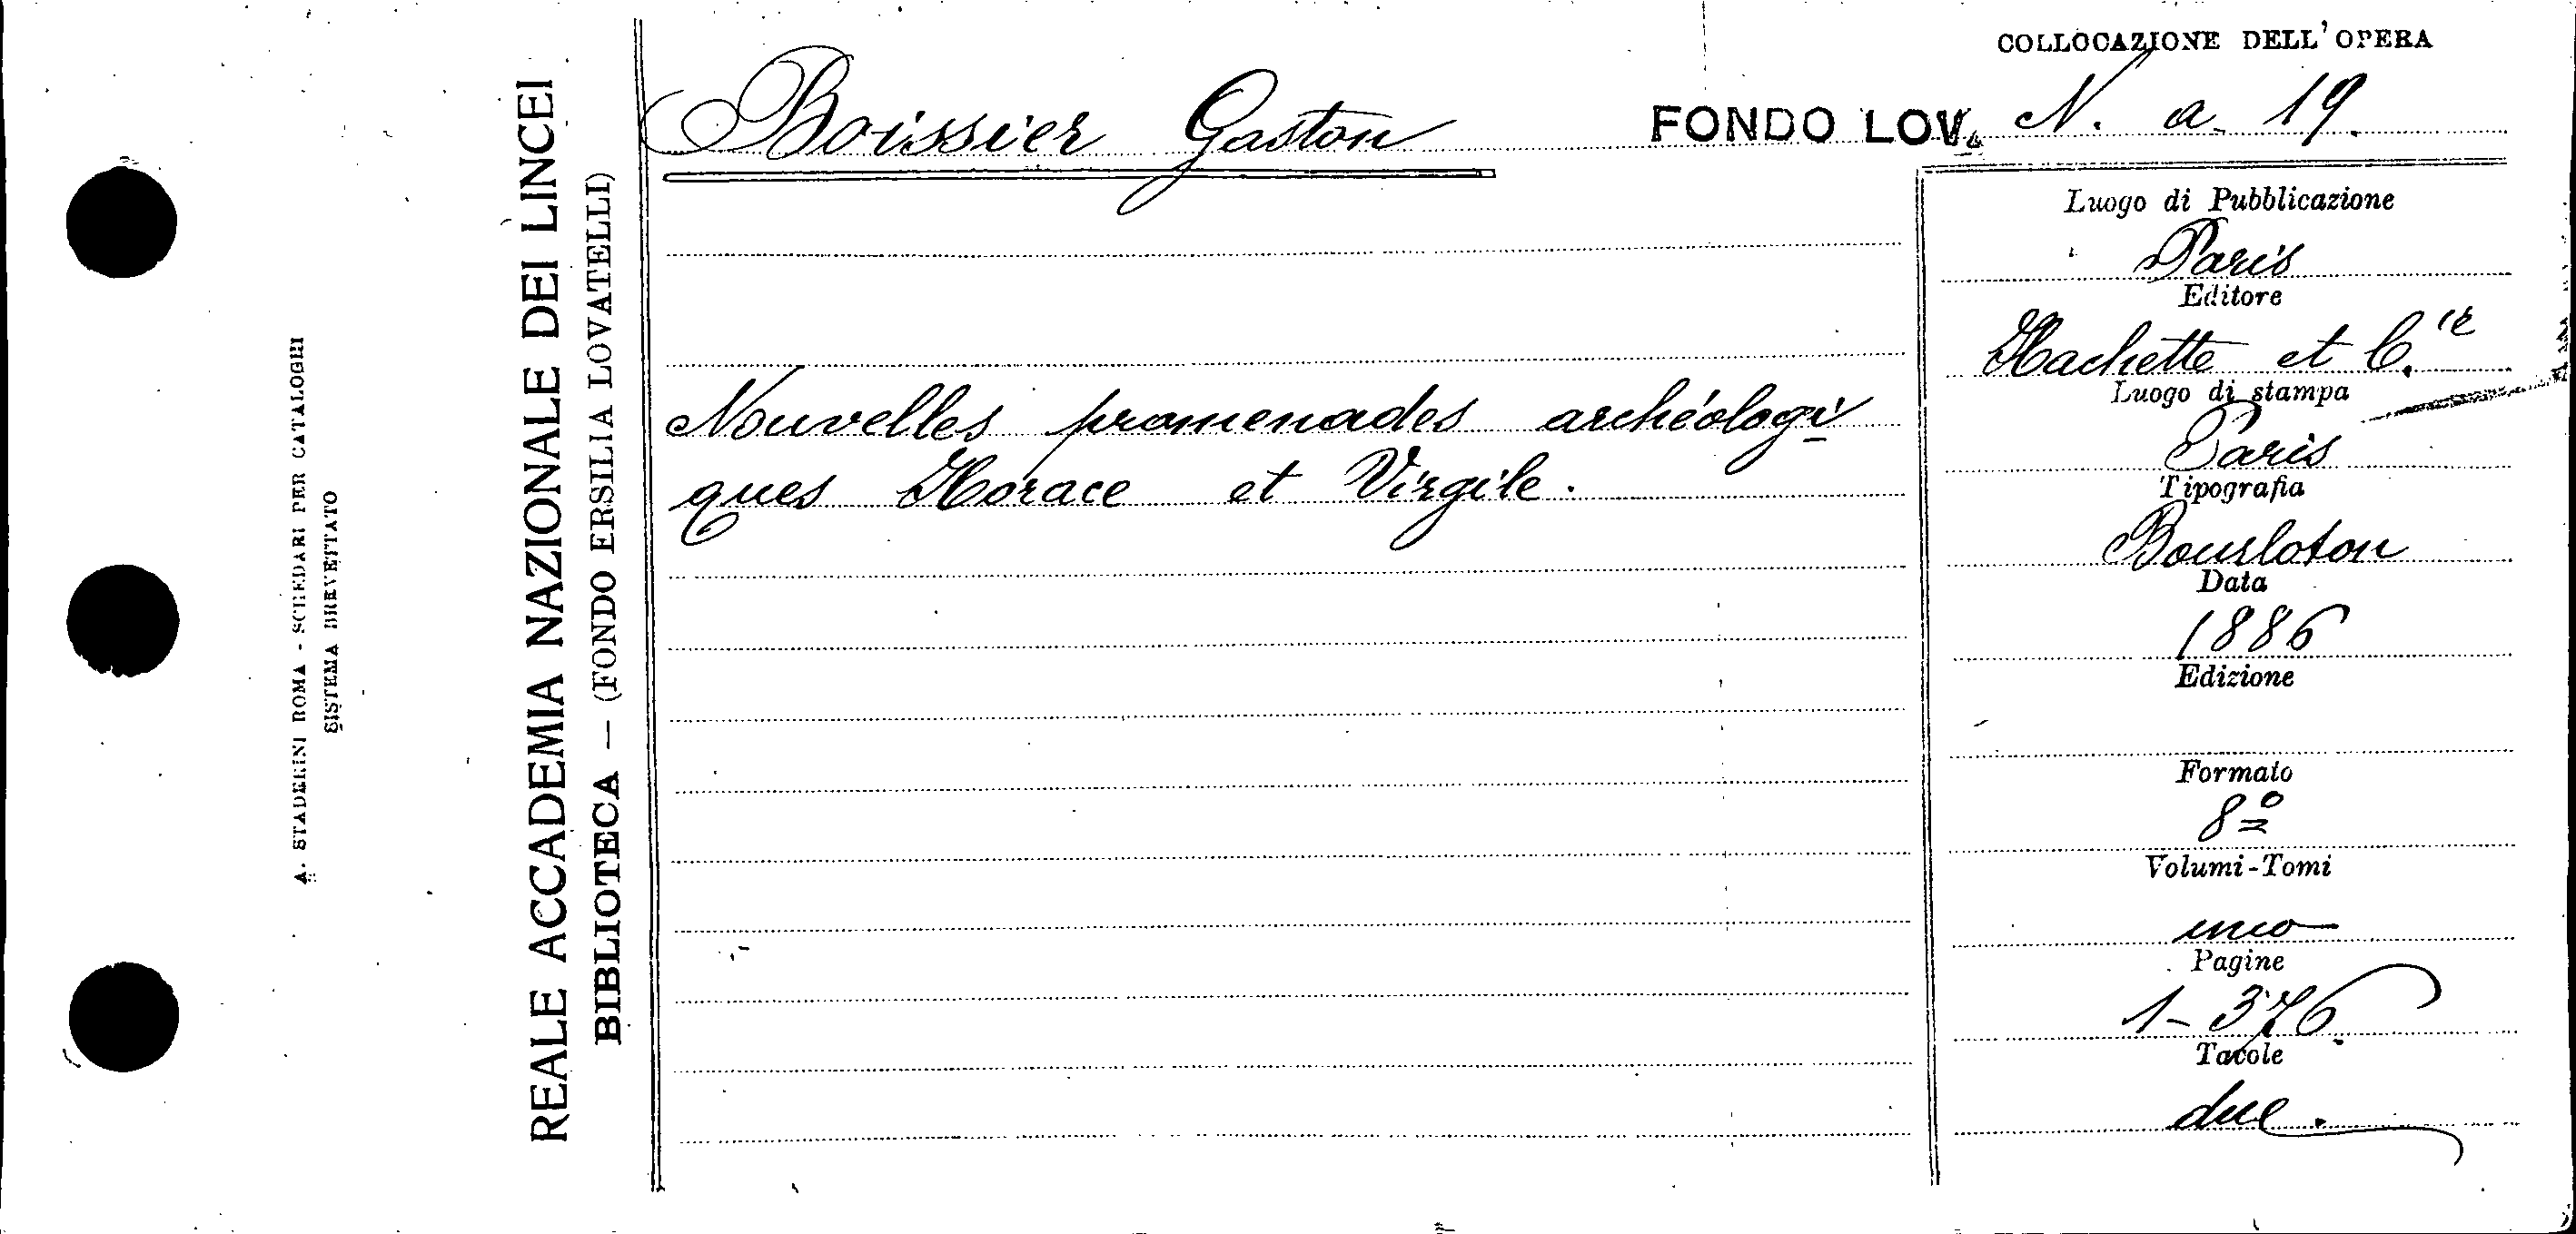 A. STADERINI ROMA - SCHEDARI PER CATALOGHI
SISTEMA BREVETTATO
REALE ACCADEMIA NAZIONALE DEI LINCEI
BIBLIOTECA — (FONDO ERSILIA LOVATELLI)
COLLOCAZIONE DELL'OPERA
Boissier Gaston FONDO LOV. N. a. 19.
Nouvelles promenades archéologi
ques Horace et Virgile.
Luogo di Pubblicazione
Paris
Editore
Hachette et C.ie
Luogo di stampa
Paris
Tipografia
Bourloton
Data
1886
Edizione
Formato
8º
Volumi-Tomi
uno
Pagine
1-376
Tavole
due.